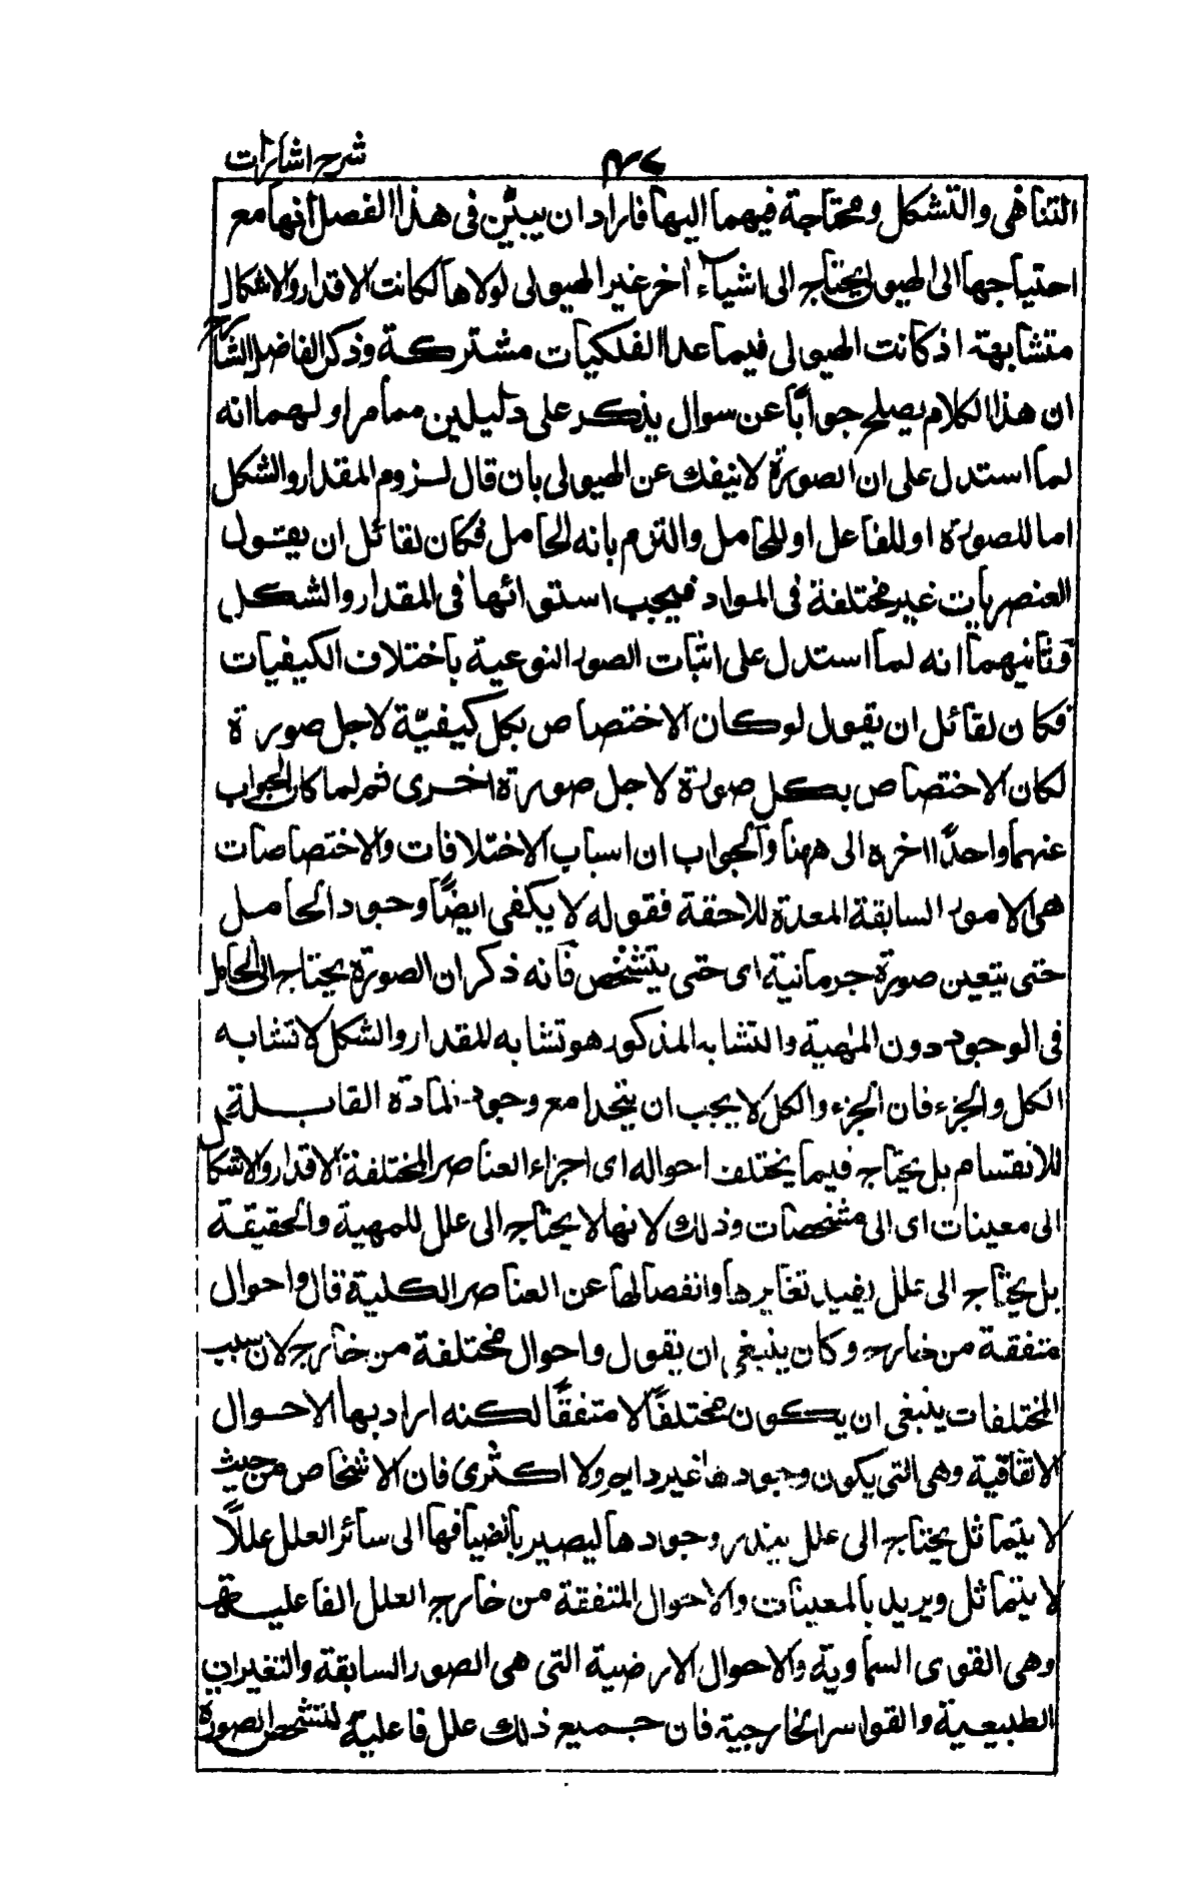 شرح اشارات
التناهى والتشكل ومحتاجة فيهما اليها فاراد ان يبيّن فى هذا الفصل انها مع
احتياجها الى الهيولى يحتاج الى اشيآء أخر غير الهيولى لولاها لكانت الاقدار والاشكال
متشابهة اذ كانت الهيولى فيما عدا الفلكيات مشتركة وذكر الفاضل الشارح
ان هذا الكلام يصلح جوابًا عن سوال يذكر على دليلين مما مر اولهما انه
لما استدل على ان الصورة لا ينفك عن الهيولى بان قال لزوم المقدار والشكل
اما للصورة او للفاعل او للحامل والتزم بانه للحامل فكان لقائل ان يقول
العنصريات غير مختلفة فى المواد فيجب استوائها فى المقدار والشكل
وثانيهما انه لما استدل على اثبات الصور النوعية باختلاف الكيفيات
فكان لقائل ان يقول لو كان الاختصاص بكل كيفيّة لاجل صورة
لكان الاختصاص بكل صورة لاجل صورة اخرى ثم لما كان الجواب
عنهما واحدًا اخره الى ههنا والجواب ان اسباب الاختلافات والاختصاصات
هى الامور السابقة المعدة للاحقة فقوله لا يكفى ايضًا وجود الحامل
حتى يتعين صورة جرمانية اى حتى يتشخص فانه ذكر ان الصورة يحتاج الى الحامل
فى الوجود دون المهية والتشابه المذكور هو تشابه المقدار والشكل لا تشابه
الكل والجزء فان الجزء والكل لا يجب ان يتحدا مع وجود المادة القابلة
للانقسام بل يحتاج فيما يختلف احواله اى اجزاء العناصر المختلفة الاقدار والاشكال
الى معينات اى الى مشخصات وذلك لانها لا يحتاج الى علل للمهية والحقيقة
بل يحتاج الى علل يفيد تغايرها وانفصالها عن العناصر الكلية قال واحوال
متفقة من خارج وكان ينبغى ان يقول واحوال مختلفة من خارج لان سبب
المختلفات ينبغى ان يكون مختلفًا لا متفقًا لكنه اراد بها الاحوال
الاتفاقية وهى التى يكون وجودها غير دايم ولا اكثرى فان الاشخاص من حيث
لا يتماثل يحتاج الى علل يندر وجودها ليصير بانضيافها الى سائر العلل عللًا
لا يتماثل ويريد بالمعينات والاحوال المتفقة من خارج العلل الفاعلية
وهى القوى السماوية والاحوال الارضية التى هى الصور السابقة والتغيرات
الطبيعية والقواسر الخارجية فان جميع ذلك علل فاعلية لتشخص الصورة